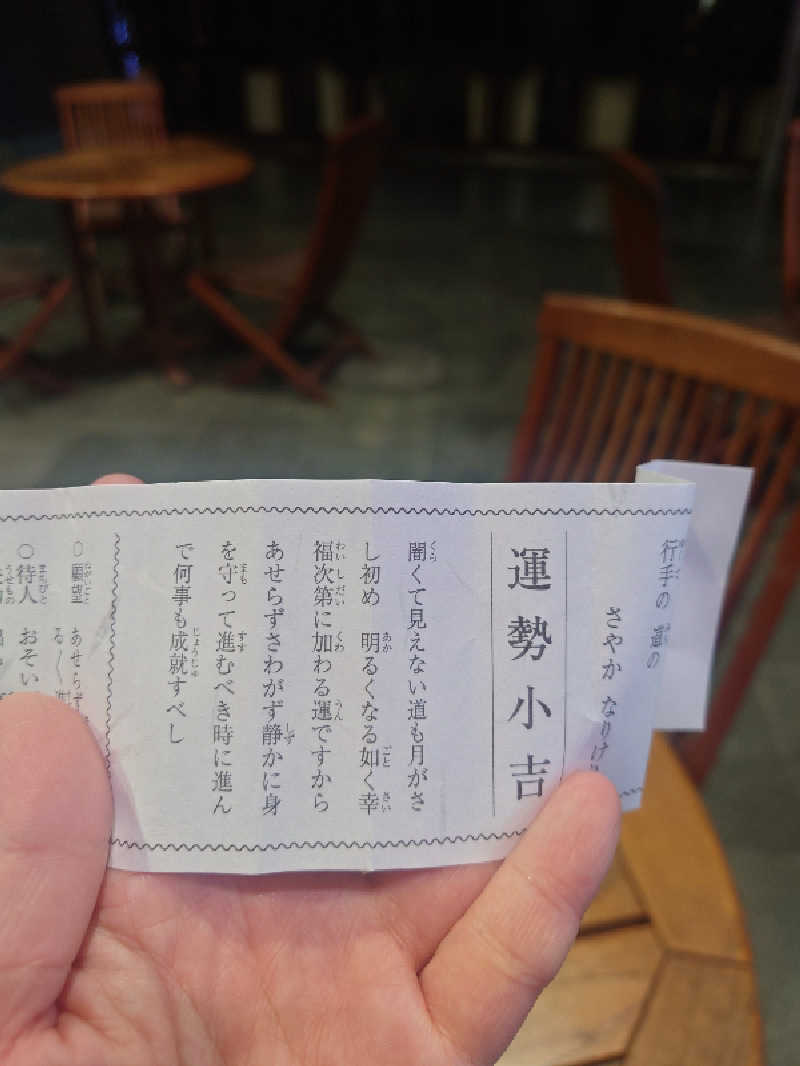 行手の 道の
さやか なりけり
運勢小吉
闇くて見えない道も月がさ
し初め 明るくなる如く幸
福次第に加わる運ですから
あせらずさわがず静かに身
を守って進むべき時に進ん
で何事も成就すべし
○願望 あせらず
る〱
○待人 おそい